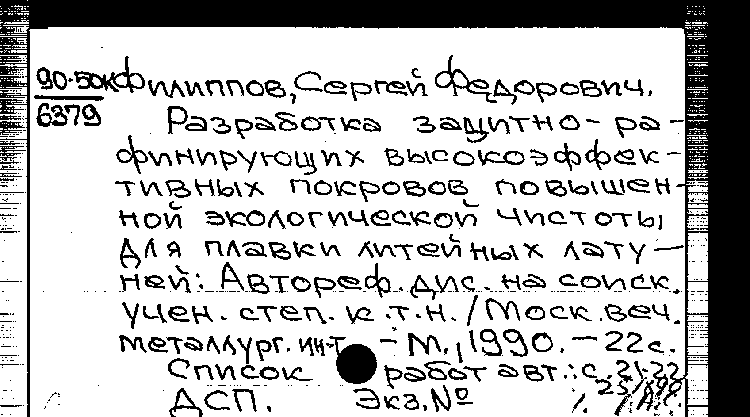 90-50к
6379
Филиппов, Сергей Федорович.
Разработка защитно-ра-
финирующих высокоэффек-
тивных покровов повышен-
ной экологической чистоты
для плавки литейных лату-
ней: Автореф. дис. на соиск.
учен. степ. к.т.н. / Моск. веч.
металлург. ин-т. - М., 1990. - 22 с.
Список работ авт.: с. 21-22
ДСП. Экз. №